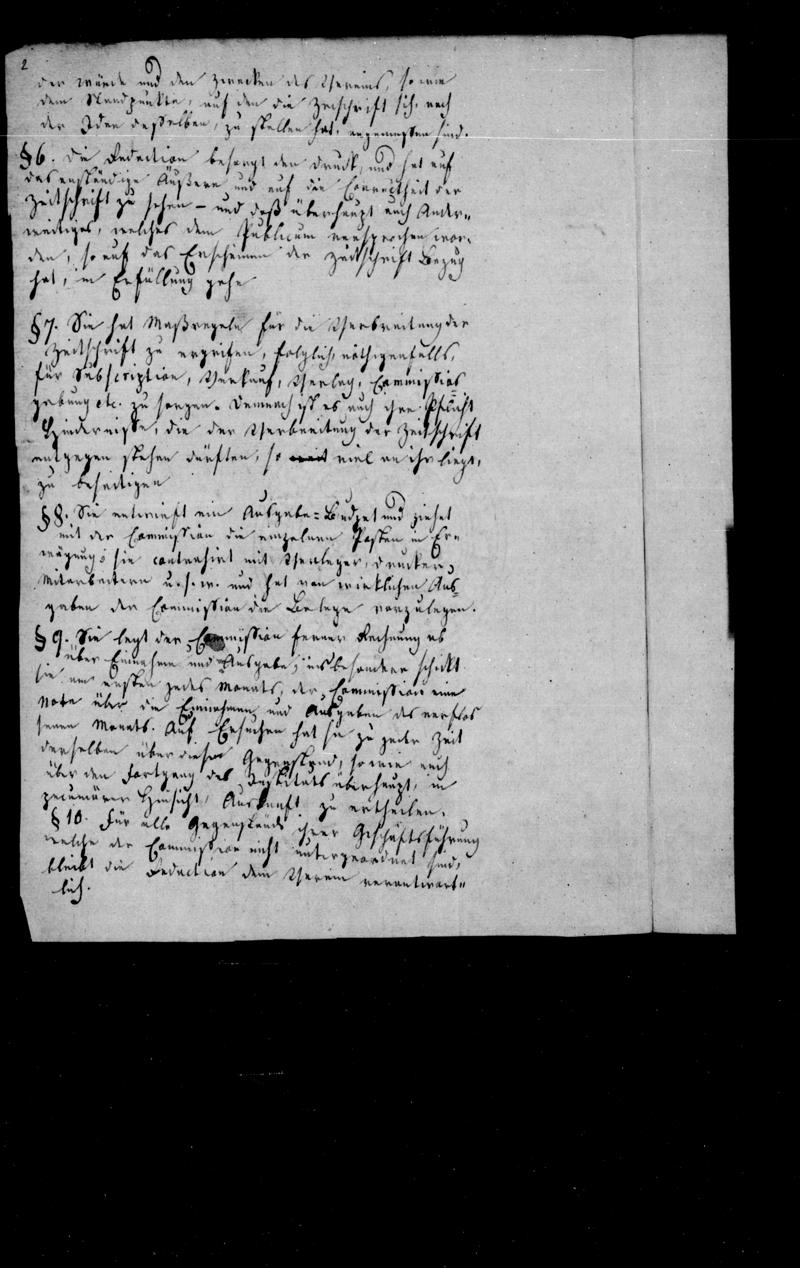 2
der Würde und den Zwecken des Vereins, so wie
dem Standpunkte, auf den die Zeitschrift sich, nach
der Idee desselben, zu stellen hat, angemessen sind.
§ 6. Die Redaction besorgt den Druck, und hat auf
das anständige Äußere und auf die Correctheit der
Zeitschrift zu sehen – und daß überhaupt auch Ander-
weitiges, welches dem Publicum versprochen wor-
den, so auf das Erscheinen der Zeitschrift Bezug
hat, in Erfüllung gehe
§ 7. Sie hat Maßregeln für die Verbreitung der
Zeitschrift zu ergreifen, folglich, nöthigenfalls,
für Subscription, Verkauf, Verlag, Commissions
gebung etc. zu sorgen. Demnach ist es auch ihre Pflicht
Hindernisse, die der Verbreitung der Zeitschrift
entgegen stehen dürften, so viel an ihr liegt,
zu beseitigen
§ 8. Sie entwirft ein Ausgabe-Budget und ziehet
mit der Commission die einzelnen Posten in Er-
wägung; sie contrahirt mit Verleger, Drucker,
Mitarbeitern u. s. w. und hat von wirklichen Aus-
gaben der Commission die Belege vorzulegen.
§ 9. Sie legt der Commission ferner Rechnung ab
über Einnahme und Ausgabe; insbesondere schickt
sie am ersten jedes Monats, der Commission eine
Note über die Einnahmen und Ausgaben des verflos
senen Monats. Auf Ersuchen hat sie zu jeder Zeit
derselben über diesen Gegenstand, so wie auch
über den Fortgang des Instituts überhaupt, in
pecuniärer Hinsicht, Auskunft zu ertheilen.
§ 10. Für alle Gegenstände ihrer Geschäftsführung
welche der Commission nicht untergeordnet sind,
bleibt die Redaction dem Verein verantwort-
lich.